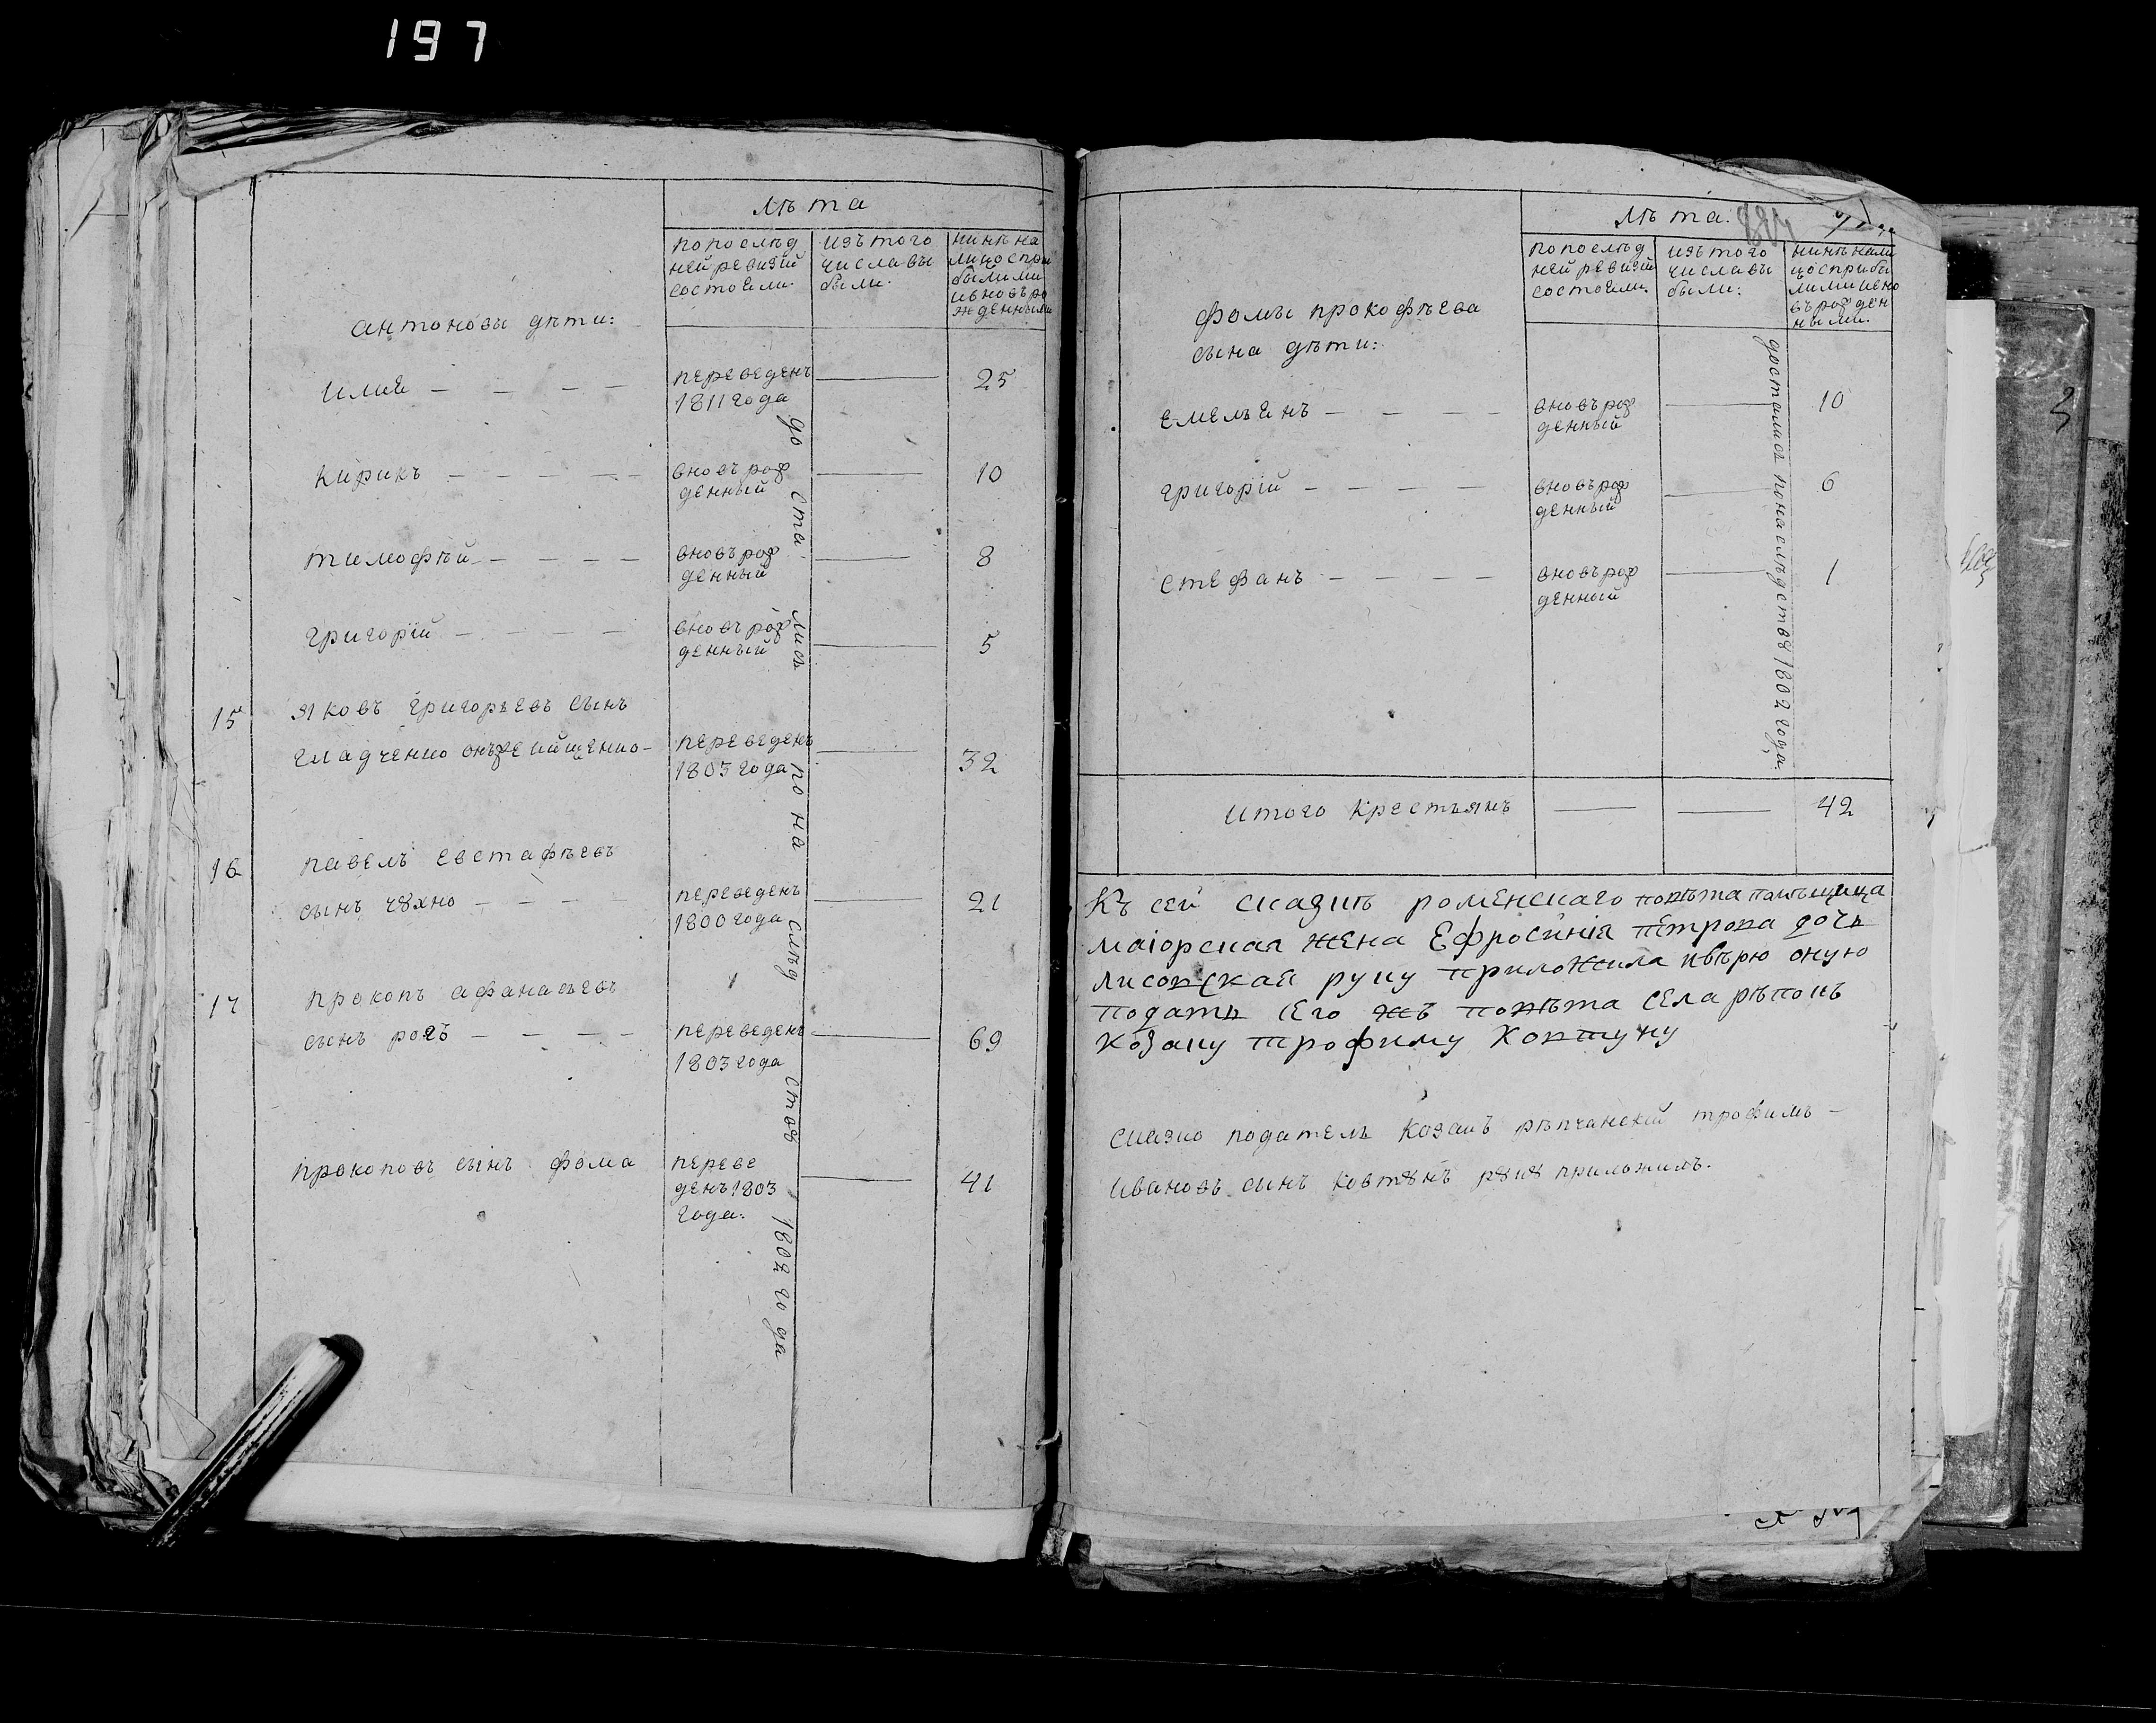 197
лѣта
попослѣд
ней ревизіи
состоели.
изътого
числавы
были.
нинѣ на
лицо спри
былими
ивновъро
жденными
антоновы дѣти:
илия
переведенъ
1811 года
25
кирикъ
вновърож
денный
10
тимофѣй
вновърож
денный
8
григорій
вновърож
денный
5
15
яковъ григорьевъ сынъ
переведенъ
1803 года
32
16
павелъ евстафѣевъ
сынъ чꙋхно
переведенъ
1800 года
21
17
прокопъ афанасьевъ
сынъ рогъ
переведенъ
1803 года
69
прокоповъ сынъ фома
переве
денъ 1803
года:
41
досталис по наслѣдствꙋ 1802 года
лѣта:
884
попослѣд
ней ревизіи
состоели.
изътого
числавы
были:
нинѣ нали
цо сприбы
лими ивно
въ рожден
ными.
фомы прокофѣева
сына дѣти:
емельянъ
вновърож
денный
10
григорій
вновърож
денный
6
стефанъ
вновърож
денный
1
досталис понаслѣдствꙋ 1802 года.
итого крестьянъ
42
Къ сей сказкѣ роменскаго повѣта помѣщица
маіорская жена Ефросинія петрова дочь
лисовская руку приложила ивѣрю оную
подать Его жъ повѣта села рѣпокъ
козаку трофиму Ковтуну
сказко податель козакъ рѣпчанскій трофимъ
ивановъ сынъ ковтꙋнъ рꙋкꙋ приложилъ.